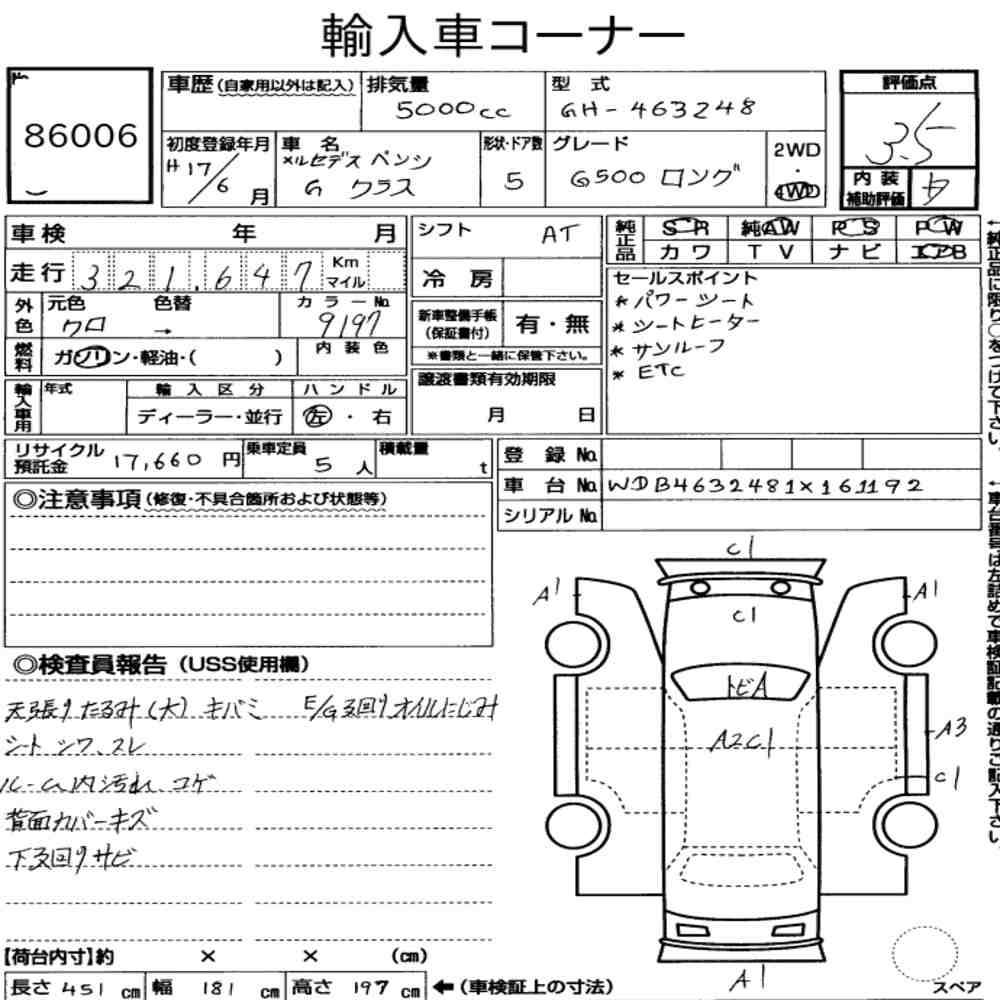 輸入車コーナー
86006
車歴(自家用以外は記入) 排気量 5000cc 型式 GH-463248 評価点 3.5
初度登録年月 H17/6月 車名 メルセデスベンツ Gクラス 形状・ドア数 5 グレード G500 ロング 2WD・4WD
内装補助評価
車検 年 月
シフト AT
純正品 SR 純AW PS PW
カワ TV ナビ エアB
走行 321,647 Km マイル
冷房
セールスポイント
*パワーシート
*シートヒーター
*サンルーフ
*ETC
外色 元色 クロ 色替 → カラーNo. 9197
新車整備手帳(保証書付) 有・無
※書類と一緒に保管下さい。
燃料 ガソリン・軽油・( ) 内装色
輸入車用 年式 輸入区分 ディーラー・並行 ハンドル 左・右
譲渡書類有効期限 月 日
リサイクル預託金 17,660円 乗車定員 5人 積載量 t
登録No.
車台No. WDB4632481X161192
シリアルNo.
←純正品に限り○をつけて下さい。
←車台番号は左詰めで車検証記載の通りご記入下さい。
◎注意事項(修復・不具合箇所および状態等)
◎検査員報告(USS使用欄)
天張りたるみ(大)キバミ E/G廻りオイルにじみ
シートシワ、スレ
ルーム内汚れ コゲ
背面カバーキズ
下廻りサビ
C1
A1 A1
C1
トビA
A2C1 A3
C1
A1
【荷台内寸】約 × × (cm)
長さ 451cm 幅 181cm 高さ 197cm ←(車検証上の寸法)
スペア